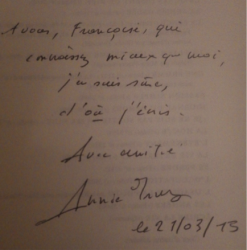 À vous, Françoise, qui
connaissez mieux que moi,
j'en suis sûre,
d'où j'écris.
Avec amitié
Annie
le 21/03/15